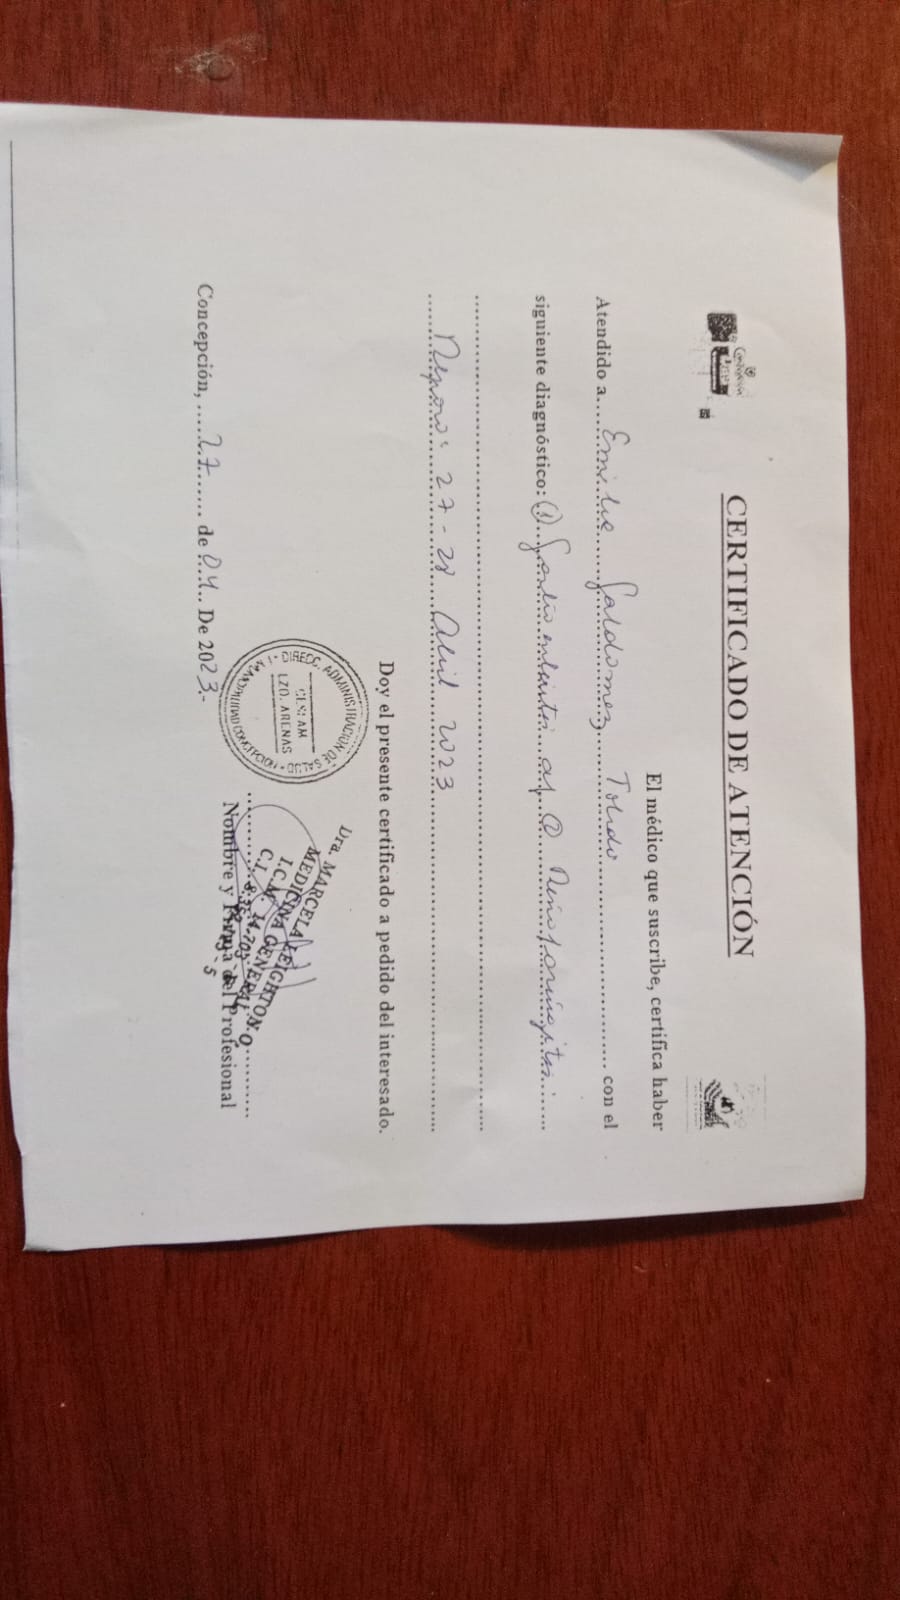 CERTIFICADO DE ATENCIÓN
El médico que suscribe, certifica haber
Atendido a Galdomez Toledo con el
siguiente diagnóstico: ① Gastroenteritis ag ② Rinofaringitis
Reposo: 27-28 Abril 2023
Doy el presente certificado a pedido del interesado.
DIRECC. ADMINISTRACION DE SALUD
CESFAM
LZO. ARENAS
I. MUNICIPALIDAD CONCEPCION
Dra. MARCELA LEIGHTON O.
MEDICINA GENERAL
Nombre y Firma del Profesional
Concepción, 27 de 04. De 2023.-